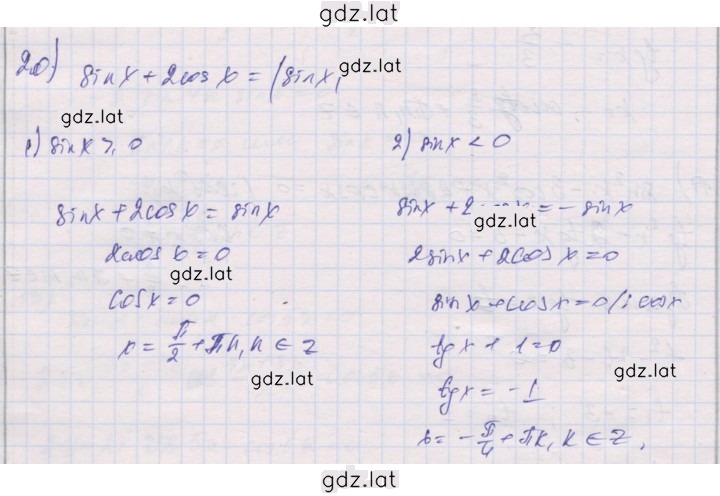 gdz.lat
20) sinx + 2cos x = |sinx|
gdz.lat
gdz.lat
1) sinx ≥ 0
sinx + 2cosx = sinx
2cos x = 0
gdz.lat
cosx = 0
x = π/2 + πk, k ∈ Z
gdz.lat
2) sinx < 0
sinx + 2 = - sinx
gdz.lat
2sinx + 2cos x = 0
sinx + cosx = 0 /: cosx
tgx + 1 = 0
gdz.lat
tgx = -1
x = - π/4 + πk, k ∈ Z.
gdz.lat